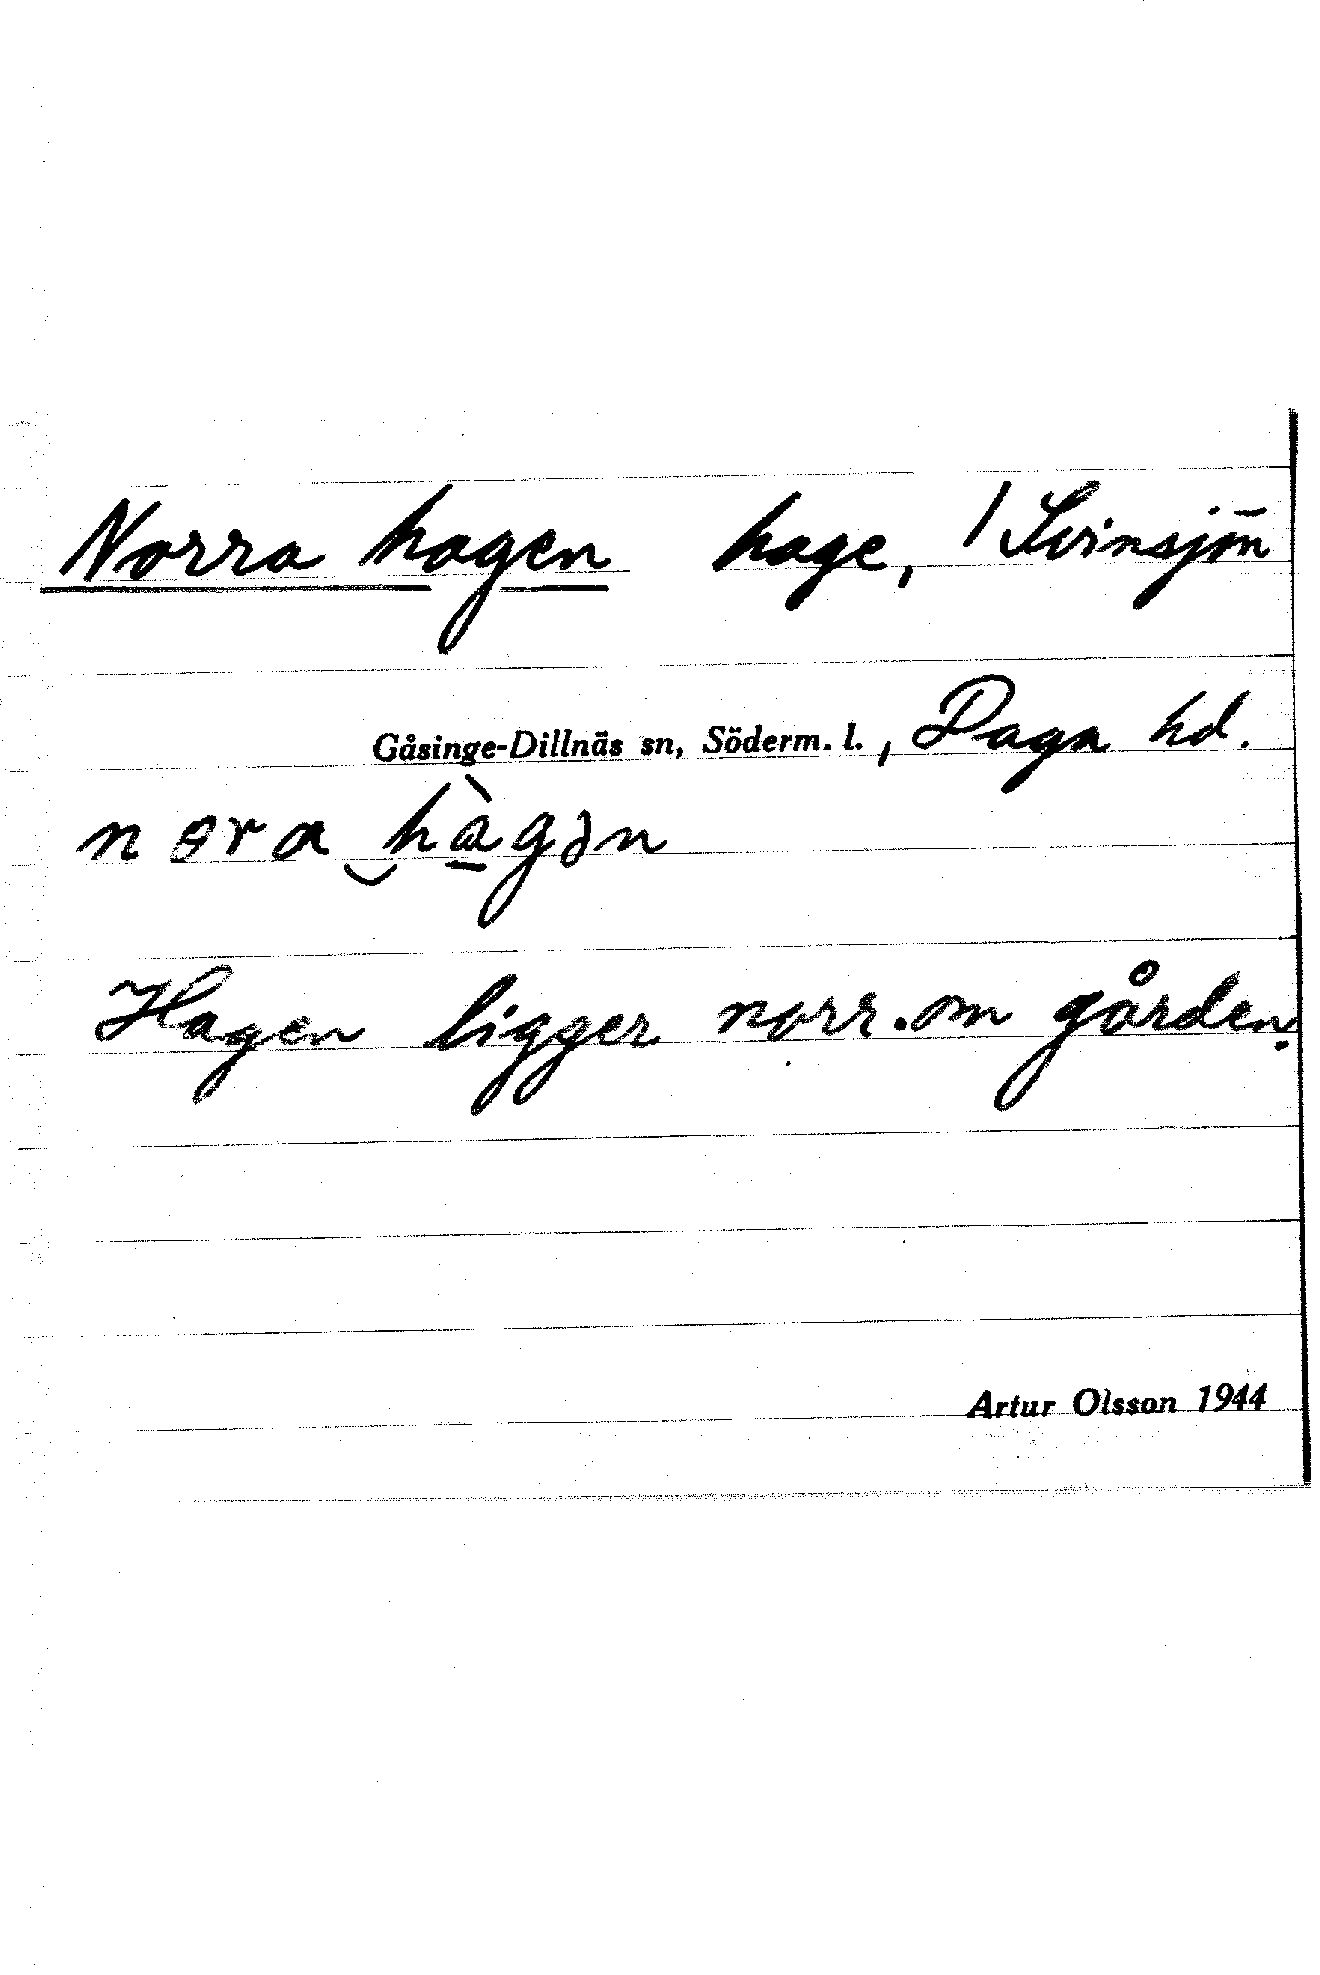 Norra hagen hage, / Svinsjön
Gåsinge-Dillnäs sn, Söderm. l., Daga hd.
nɵra hàgən
Hagen ligger norr om gården.
Artur Olsson 1944